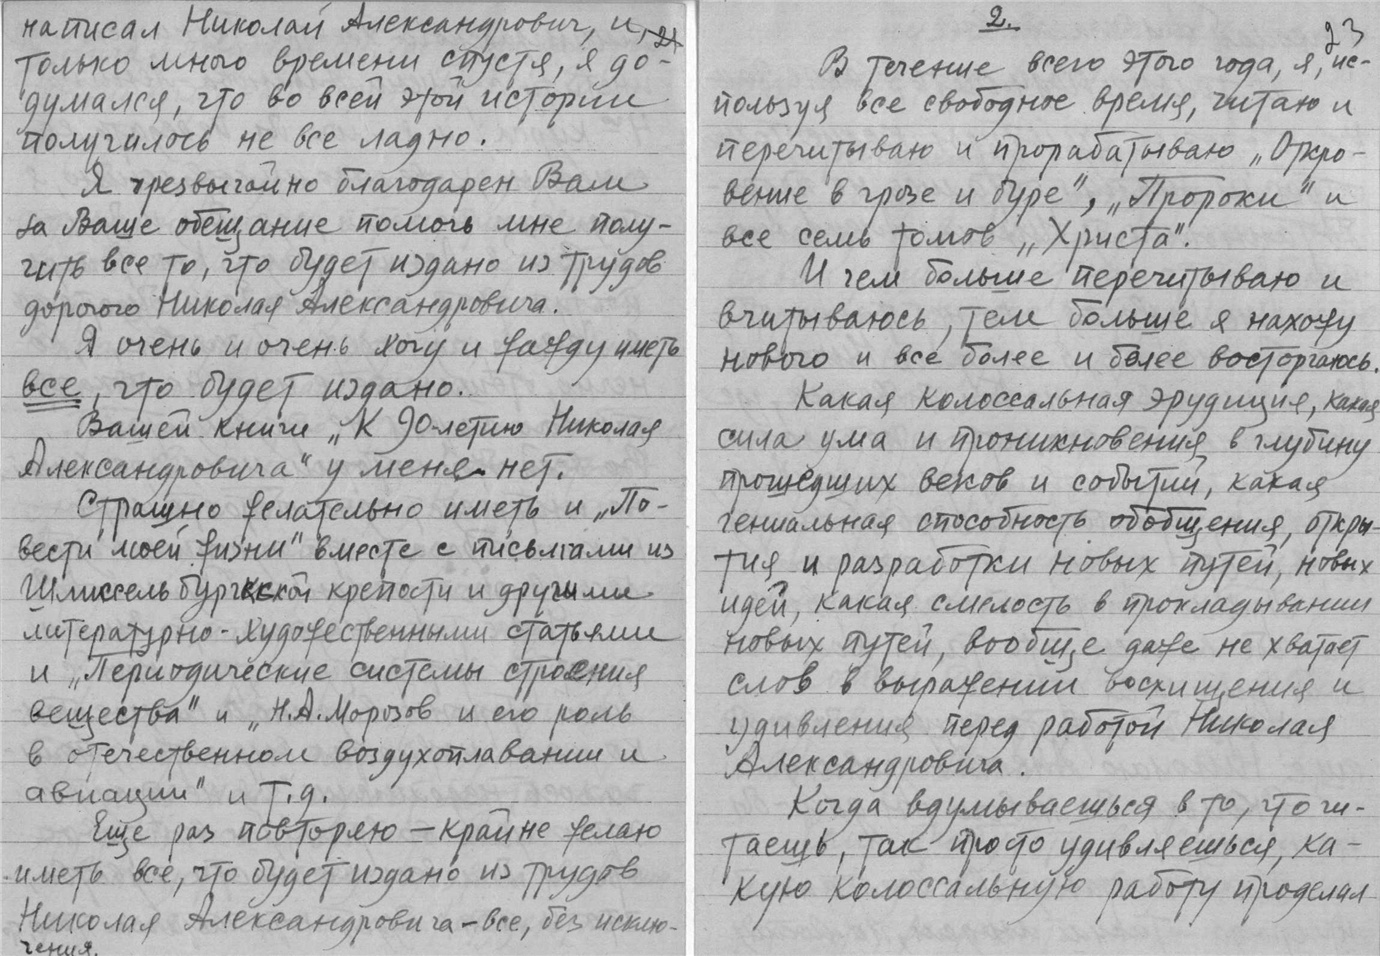 написал Николай Александрович, и, 21
только много времени спустя, я до-
думался, что во всей этой истории
получилось не все ладно.
Я чрезвычайно благодарен Вам
за Ваше обещание помочь мне полу-
чить все то, что будет издано из трудов
дорогого Николая Александровича.
Я очень и очень хочу и жажду иметь
все, что будет издано.
Вашей книги „К 90-летию Николая
Александровича" у меня нет.
Страшно желательно иметь и „По-
вести моей жизни" вместе с письмами из
Шлиссельбургской крепости и другими
литературно-художественными статьями
и „Периодические системы строения
вещества" и „Н.А.Морозов и его роль
в отечественном воздухоплавании и
авиации" и т.д.
Еще раз повторяю – крайне желаю
иметь все, что будет издано из трудов
Николая Александровича – все, без исклю-
чения.
2. 23
В течение всего этого года, я, ис-
пользуя все свободное время, читаю и
перечитываю и прорабатываю „Откро-
вение в грозе и буре", „Пророки" и
все семь томов „Христа".
И чем больше перечитываю и
вчитываюсь, тем больше я нахожу
нового и все более и более восторгаюсь.
Какая колоссальная эрудиция, какая
сила ума и проникновения в глубину
прошедших веков и событий, какая
гениальная способность обобщения, откры-
тия и разработки новых путей, новых
идей, какая смелость в прокладывании
новых путей, вообще даже не хватает
слов в выражении восхищения и
удивления перед работой Николая
Александровича.
Когда вдумываешься в то, что чи-
таешь, так просто удивляешься, ка-
кую колоссальную работу проделал